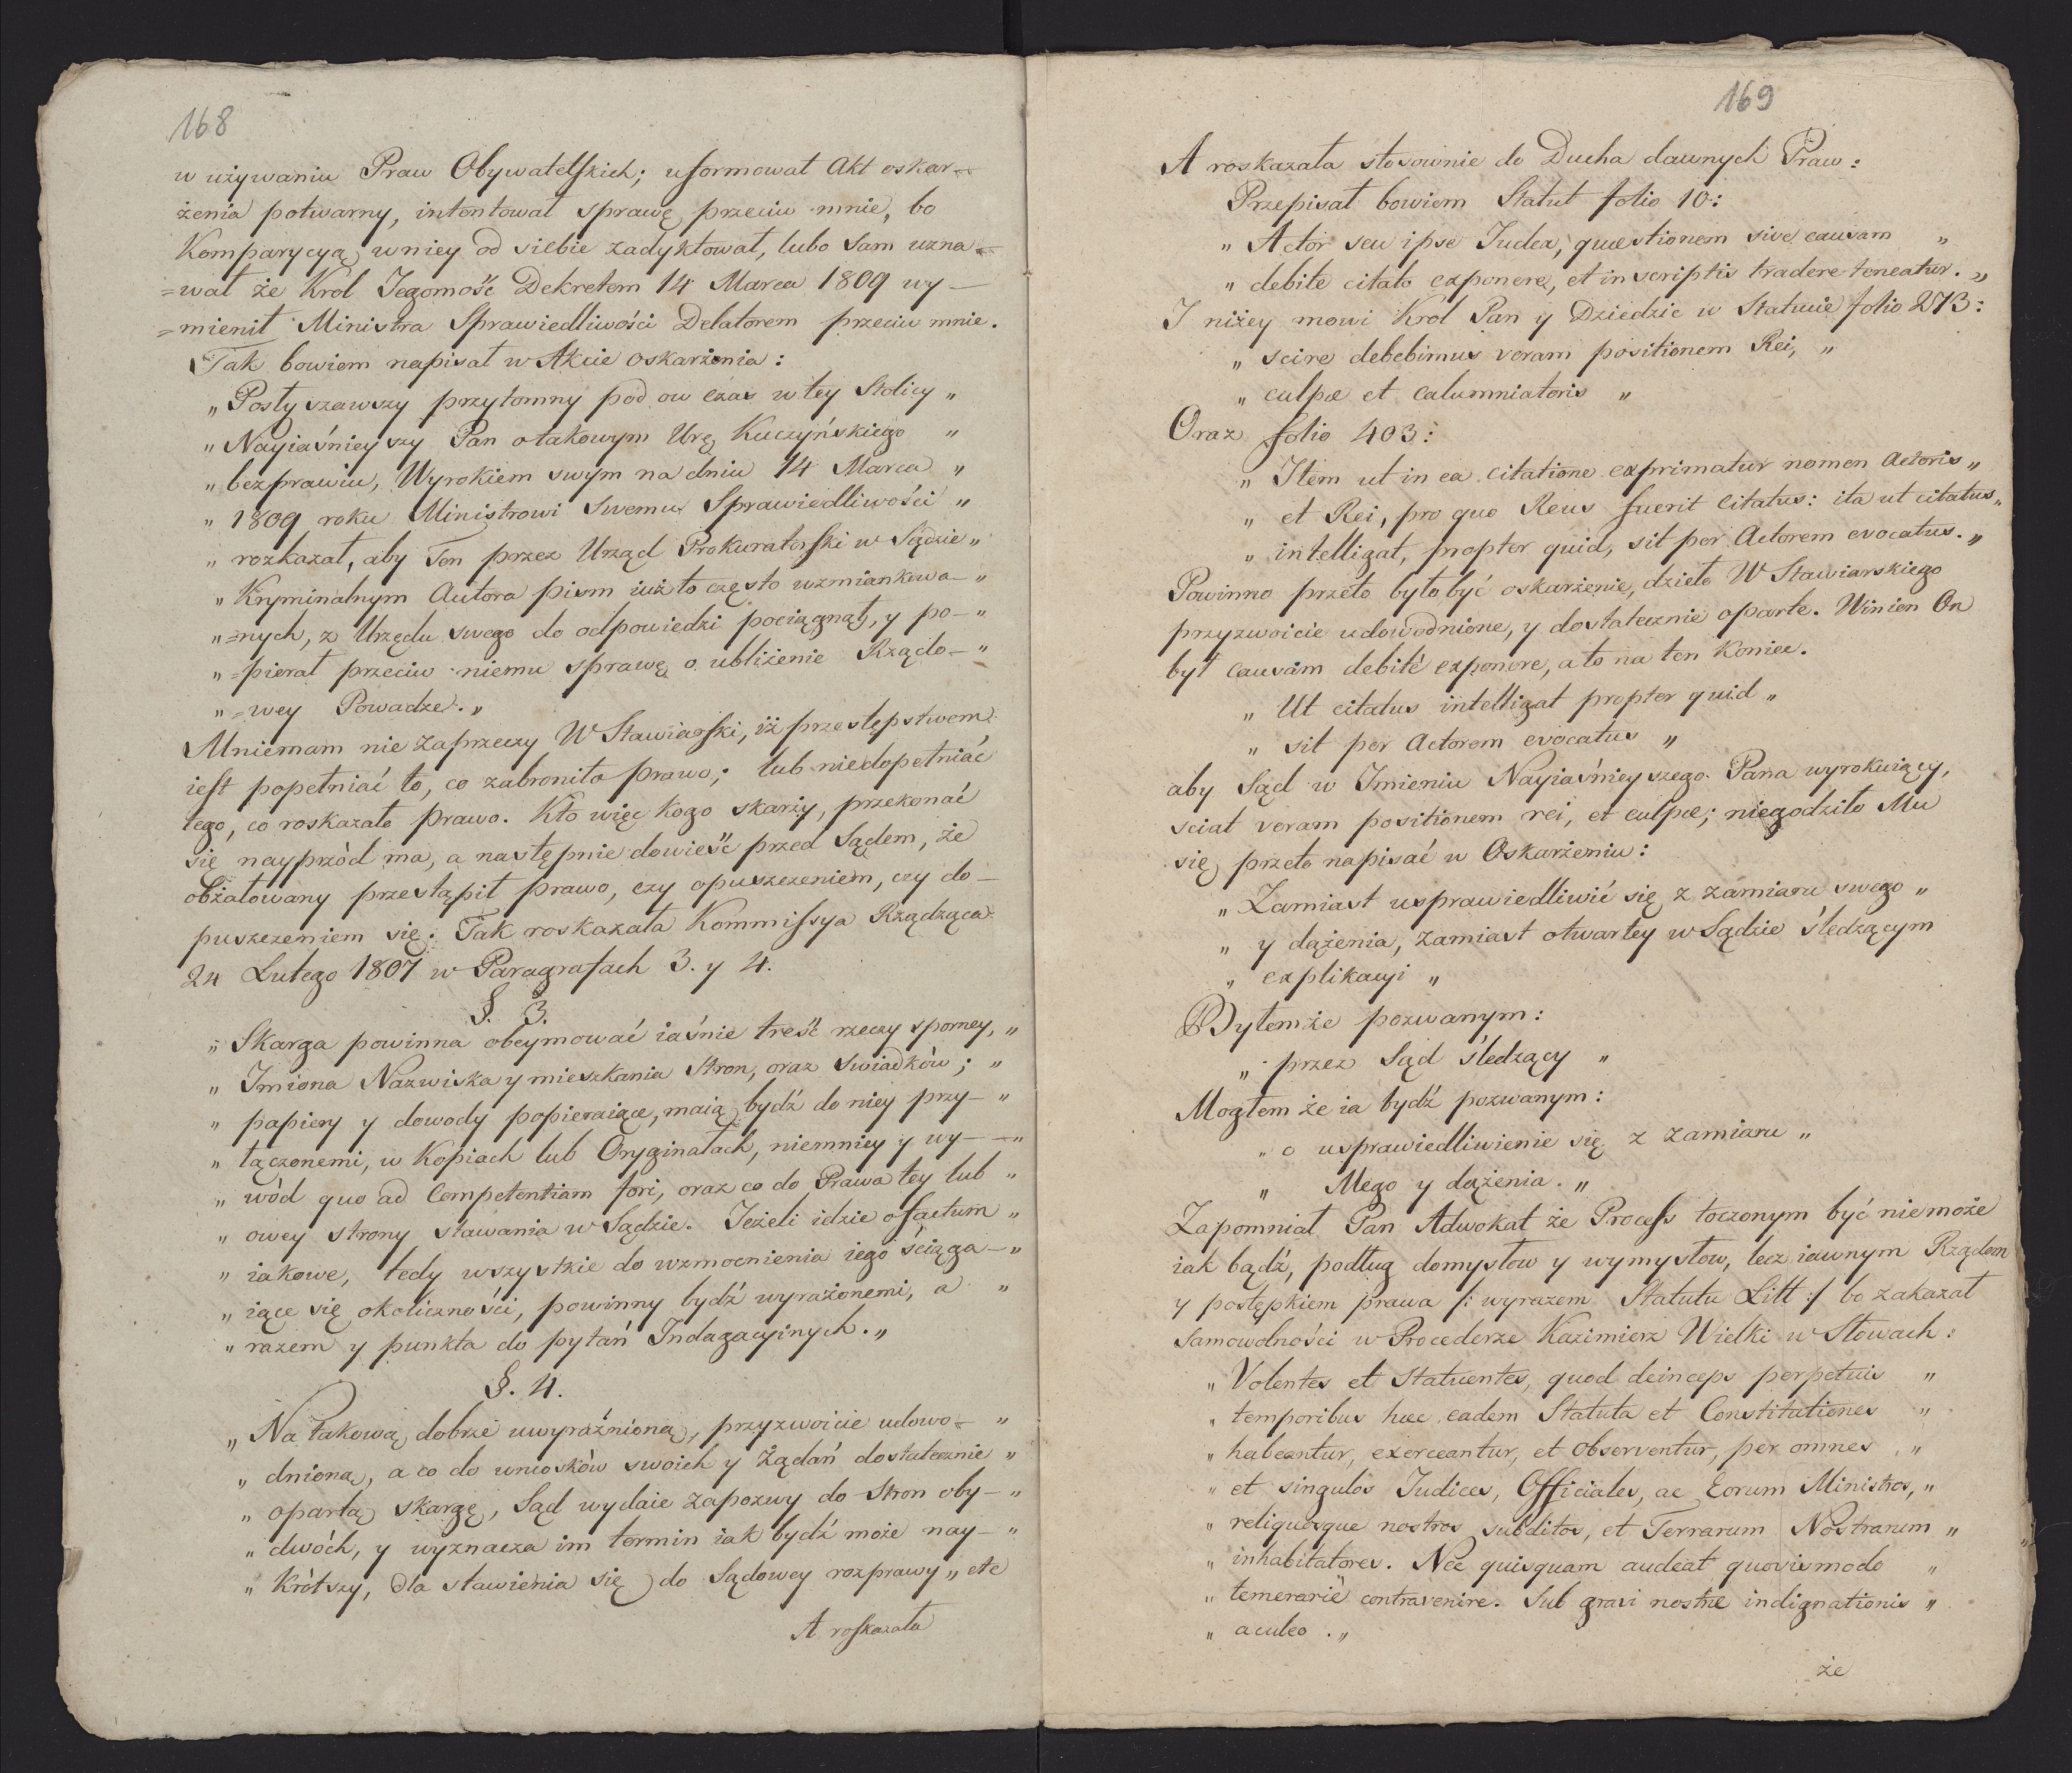 168
w używaniu Praw Obywatelskich; uformował Akt oskar-
żenia potwarny, intentował sprawę przeciw mnie, bo
Komparycyą w niey od siebie zadyktował, lubo sam uzna=
=wał że Krol Jegomość Dekretem 14 Marca 1809 wy-
=mienił Ministra Sprawiedliwości Delatorem przeciw mnie.
Tak bowiem napisał w Akcie oskarżenia:
„ Posłyszawszy przytomny pod ow czas w tey Stolicy „
„ Nayiaśnieyszy Pan o takowym Urę Kuczyńskiego „
„ bezprawiu, Wyrokiem swym na dniu 14 Marca „
„ 1809 roku Ministrowi Swemu Sprawiedliwości „
„ rozkazał, aby Ten przez Urząd Prokuratorski w Sądzie „
„ Kryminalnym Autora pism iuż to często wzmiankowa- „
„ =nych, z Urzędu swego do odpowiedzi pociągnął, y po- „
„ =pierał przeciw niemu sprawę o ubliżenie Rządo- „
„ =wey Powadze. „
Mniemam nie zaprzeczy W Stawiarski, iż przestępstwem
iest popełniać to, co zabroniło prawo; lub niedopełniać
tego, co roskazało prawo. Kto więc kogo skarży, przekonać
się nayprzód ma, a następnie dowieść przed Sądem, że
obżałowany przestąpił prawo, czy opuszczeniem, czy do-
puszczeniem się. Tak roskazała Kommissya Rządząca
24 Lutego 1807 w Paragrafach 3. y 4.
§. 3.
„ Skarga powinna obeymować iaśnie treść rzeczy sporney, „
„ Imiona Nazwiska y mieszkania Stron, oraz Swiadków; „
„ papiery y dowody popieraiące, maią bydź do niey przy- „
„ łączonemi, w Kopiach lub Oryginałach, niemniey y wy- „
„ wód quo ad Competentiam fori, oraz co do Prawa tey lub „
„ owey strony stawania w Sądzie. Jeżeli idzie o factum „
„ iakowe, tedy wszystkie do wzmocnienia iego ściąga- „
„ iące się okoliczności, powinny bydź wyrażonemi, a „
„ razem y punkta do pytań Indagacyinych. „
§. 4.
„ Na takową dobrze uwyraźnioną, przyzwoicie udowo- „
„ dnioną, a co do wniosków swoich y Żądań dostatecznie „
„ opartą skargę, Sąd wydaie Zapozwy do Stron oby- „
„ dwóch, y wyznacza im termin iak bydź może nay- „
„ Krótszy, dla stawienia się do Sądowey rozprawy „ etc
A roskazała
169
A roskazała stosownie do Ducha dawnych Praw:
Przepisał bowiem Statut folio 10:
„ Actor seu ipse Judex, quæstionem sive causam „
„ debite citato exponere, et in scriptis tradere teneatur. „
I niżey mowi Krol Pan y Dziedzic w Statucie folio 273:
„ scire debebimus veram positionem Rei, „
„ culpæ et calumniatoris „
Oraz folio 403:
„ Item ut in ea citatione exprimatur nomen Actoris „
„ et Rei, pro quo Reus fuerit Citatus: ita ut citatus „
„ intelligat, propter quid, sit per Actorem evocatus. „
Powinno przeto było być oskarżenie, dzieło W Stawiarskiego
przyzwoicie udowodnione, y dostatecznie oparte. Winien On
był causam debitè exponere, a to na ten Koniec.
„ Ut citatus intelligat propter quid „
„ sit per Actorem evocatus „
aby Sąd w Imieniu Nayiaśnieyszego Pana wyrokuiący,
sciał veram positionem rei, et culpæ; niegodziło Mu
się przeto napisać w Oskarżeniu:
„ Zamiast usprawiedliwić się z zamiaru swego „
„ y dążenia, zamiast otwartey w Sądzie śledzącym
„ explikacyi „
Byłemże pozwanym:
„ przez Sąd śledzący „
Mogłem że ia bydź pozwanym:
„ o usprawiedliwienie się z zamiaru „
„ Mego y dążenia. „
Zapomniał Pan Adwokat że Process toczonym być niemoże
iak bądź, podług domysłow y wymysłow, lecz iawnym Rządem
y postępkiem prawa /: wyrazem Statutu Litt :/ bo zakazał
Samowolności w Procederze Kazimierz Wielki w Słowach:
„ Volentes et Statuentes, quod deinceps perpetuis „
„ temporibus hæc eadem Statuta et Constitutiones „
„ habeantur, exerceantur, et observentur, per omnes „
„ et singulos Judices, Officiales, ac Eorum Ministros, „
„ reliquosque nostros subditos, et Terrarum Nostrarum „
„ inhabitatores. Nec quisquam audeat quovismodo „
„ temerariè contravenire. Sub gravi nostræ indignationis „
„ aculeo. „
że